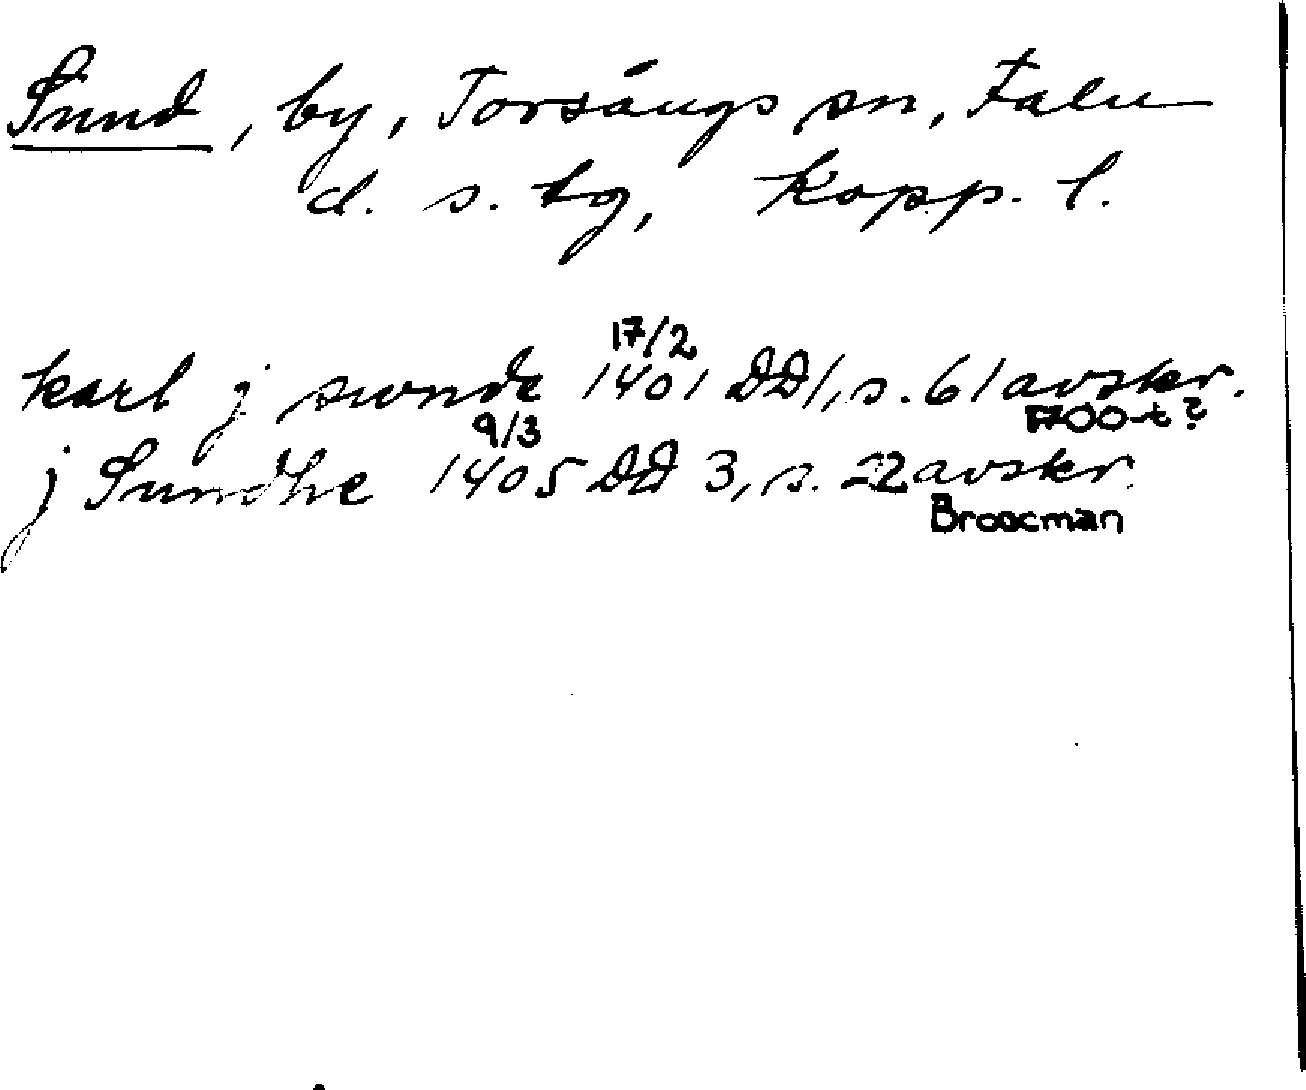 Sund, by, Torsångs sn, Falu
d. s. tg, Kopp. l.
17/2
karl j swnde 1401 DD1, s. 61 avskr.
1700-t?
9/3
j Sundhe 1405 DD 3, s. 22 avskr.
Broocman